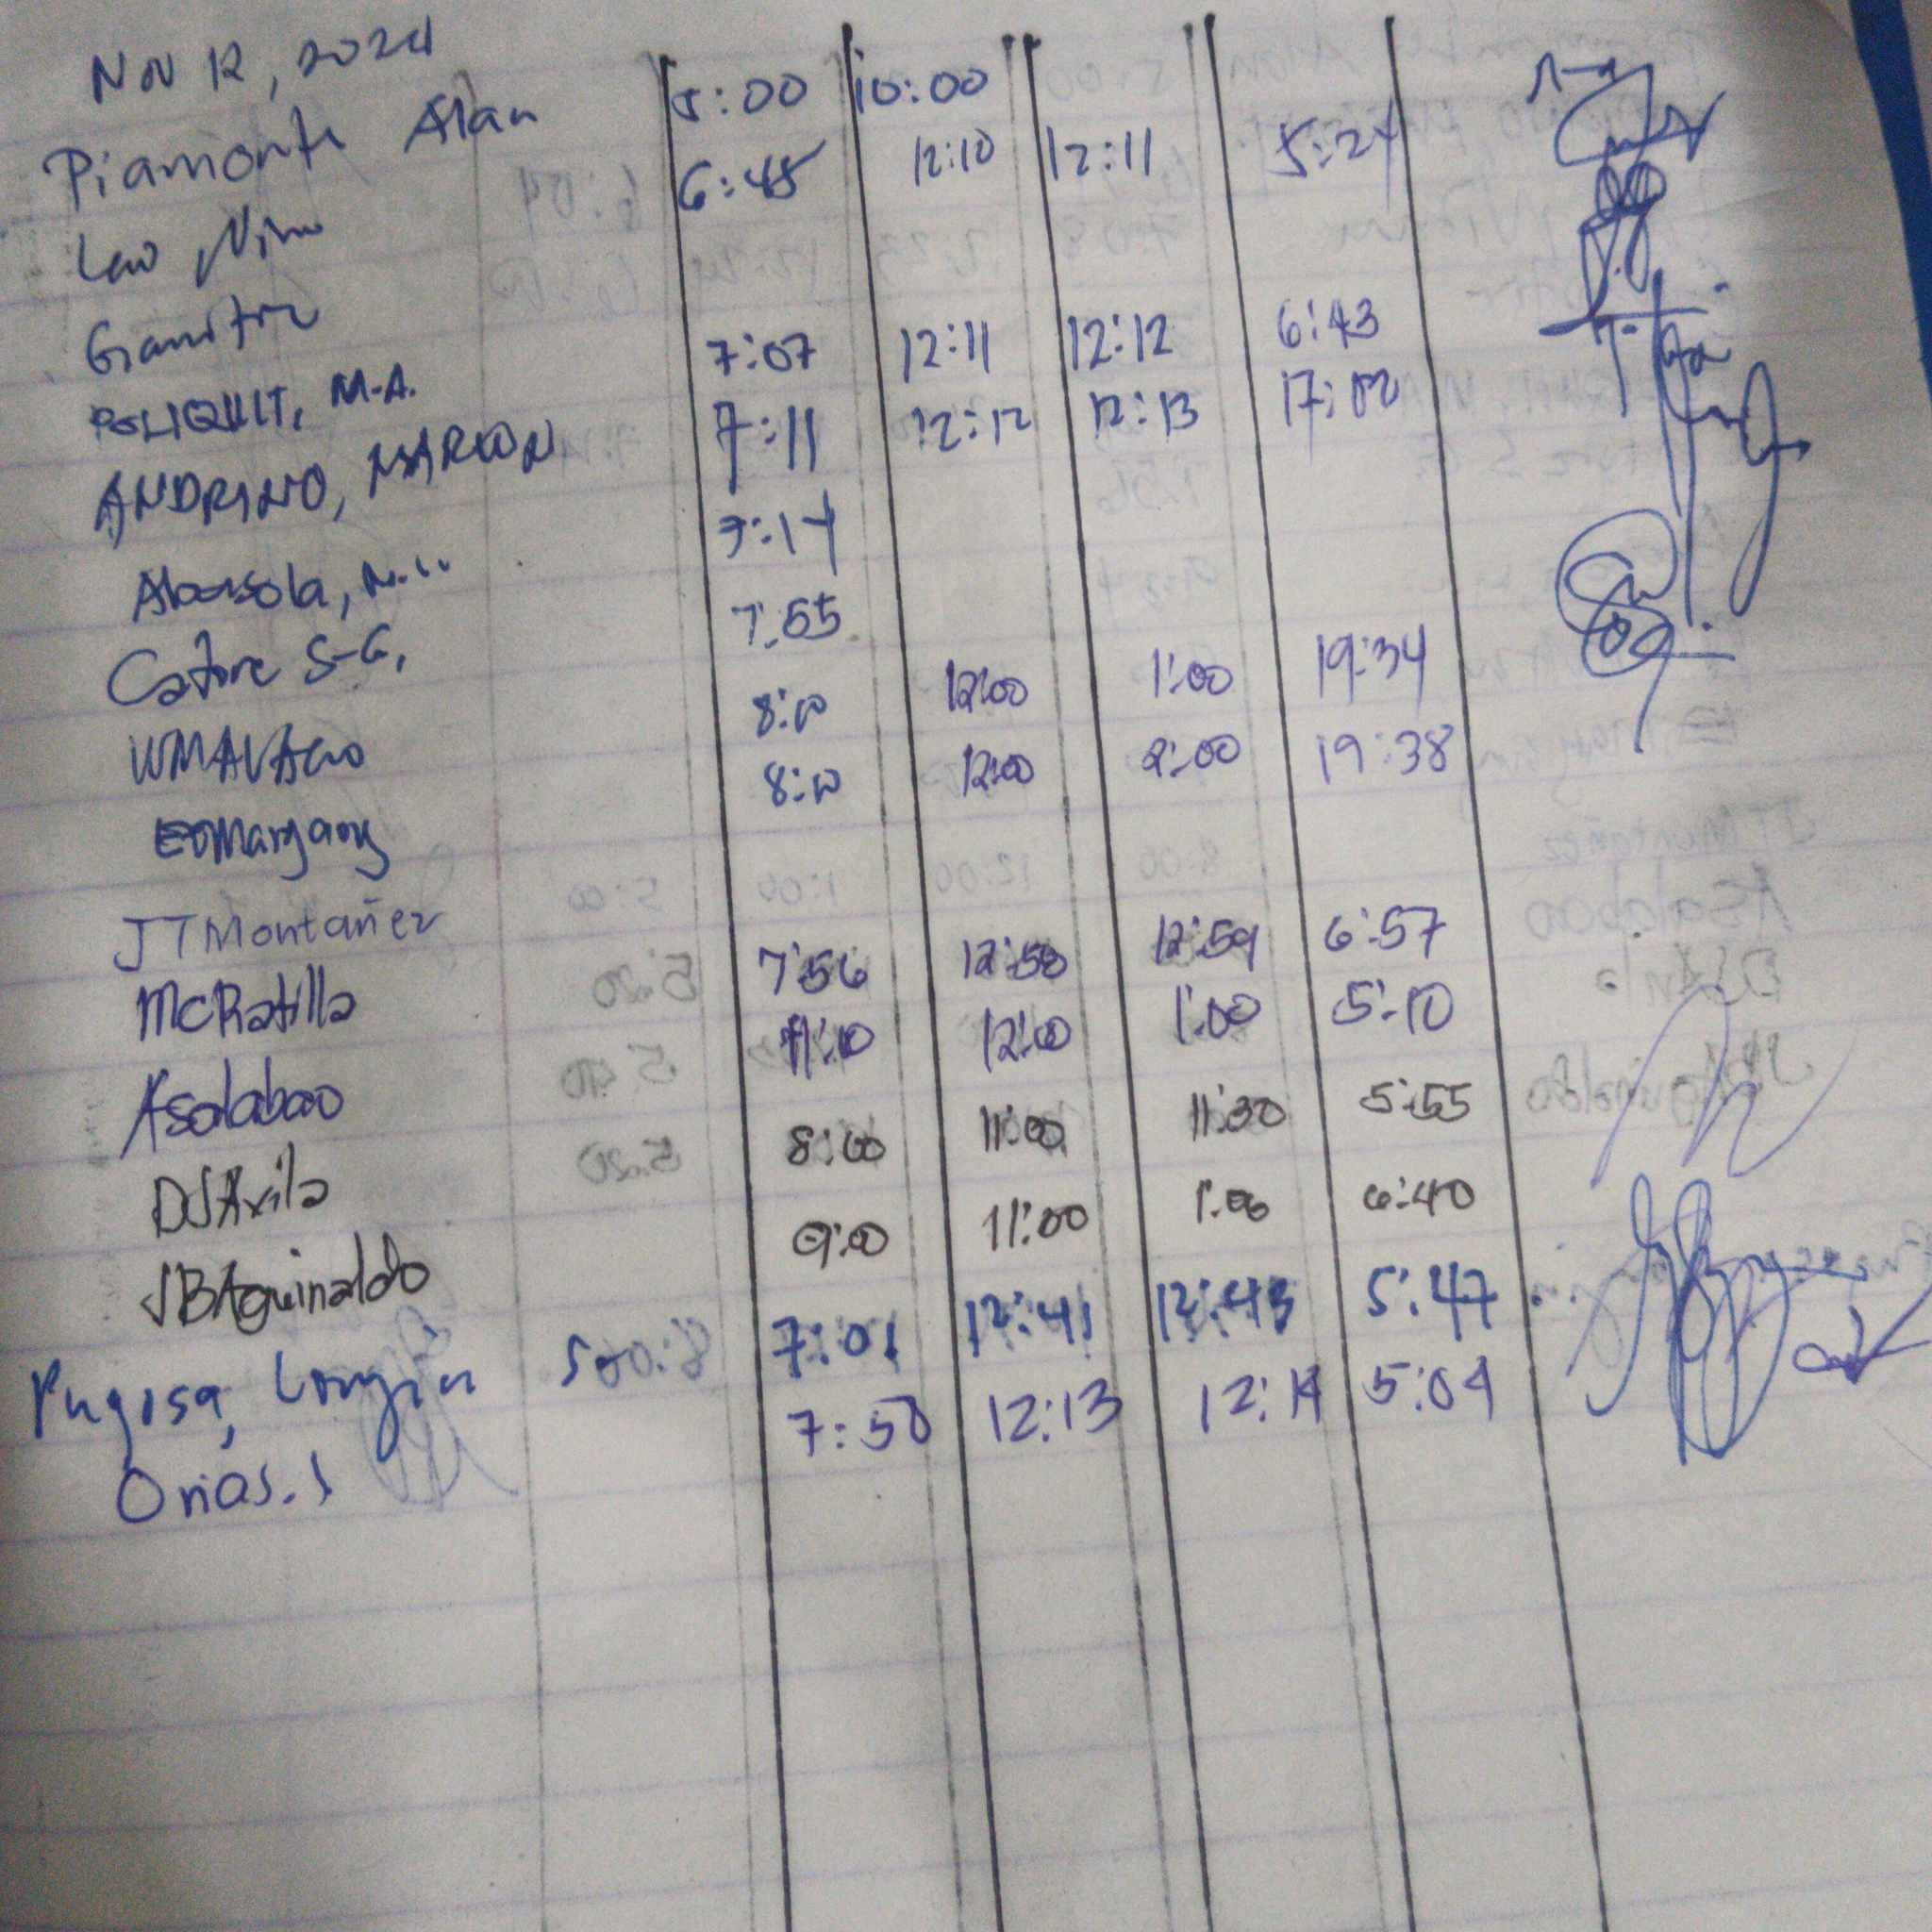 Nov 12, 2024
Piamonte Alan 5:00 10:00
Lao Nino 6:45 12:10 12:11 5:24
POLIQUIT, M.A. 7:07 12:11 12:12 6:43
ANDRINO, MARLON 7:11 12:12 12:13 17:02
7:14
Catore S-G, 7:55
8:00 12:00 1:00 19:34
8:00 12:00 2:00 19:38
JTMontañez
MCRatilla 7:56 12:58 12:59 6:57
Asalabao 12:00 1:00 5:10
DJAvila 8:00 11:00 11:30 5:55
JBAguinaldo 9:00 11:00 1:00 6:40
Pugosa, Longin 7:01 12:41 12:43 5:47
Orias.S 7:58 12:13 12:14 5:04